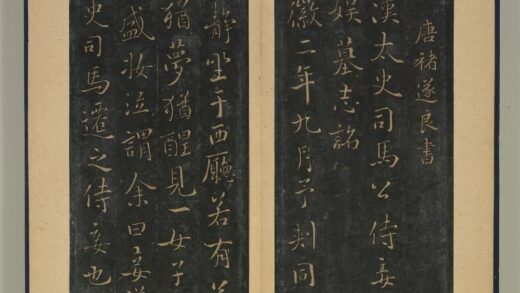 唐褚遂良書
漢太史司馬公侍妾
娛墓志銘
徽二年九月予刺同
靜坐于西廳若有
猶夢猶醒見一女子
盛妝泣謂余曰妾
史司馬遷之侍妾也